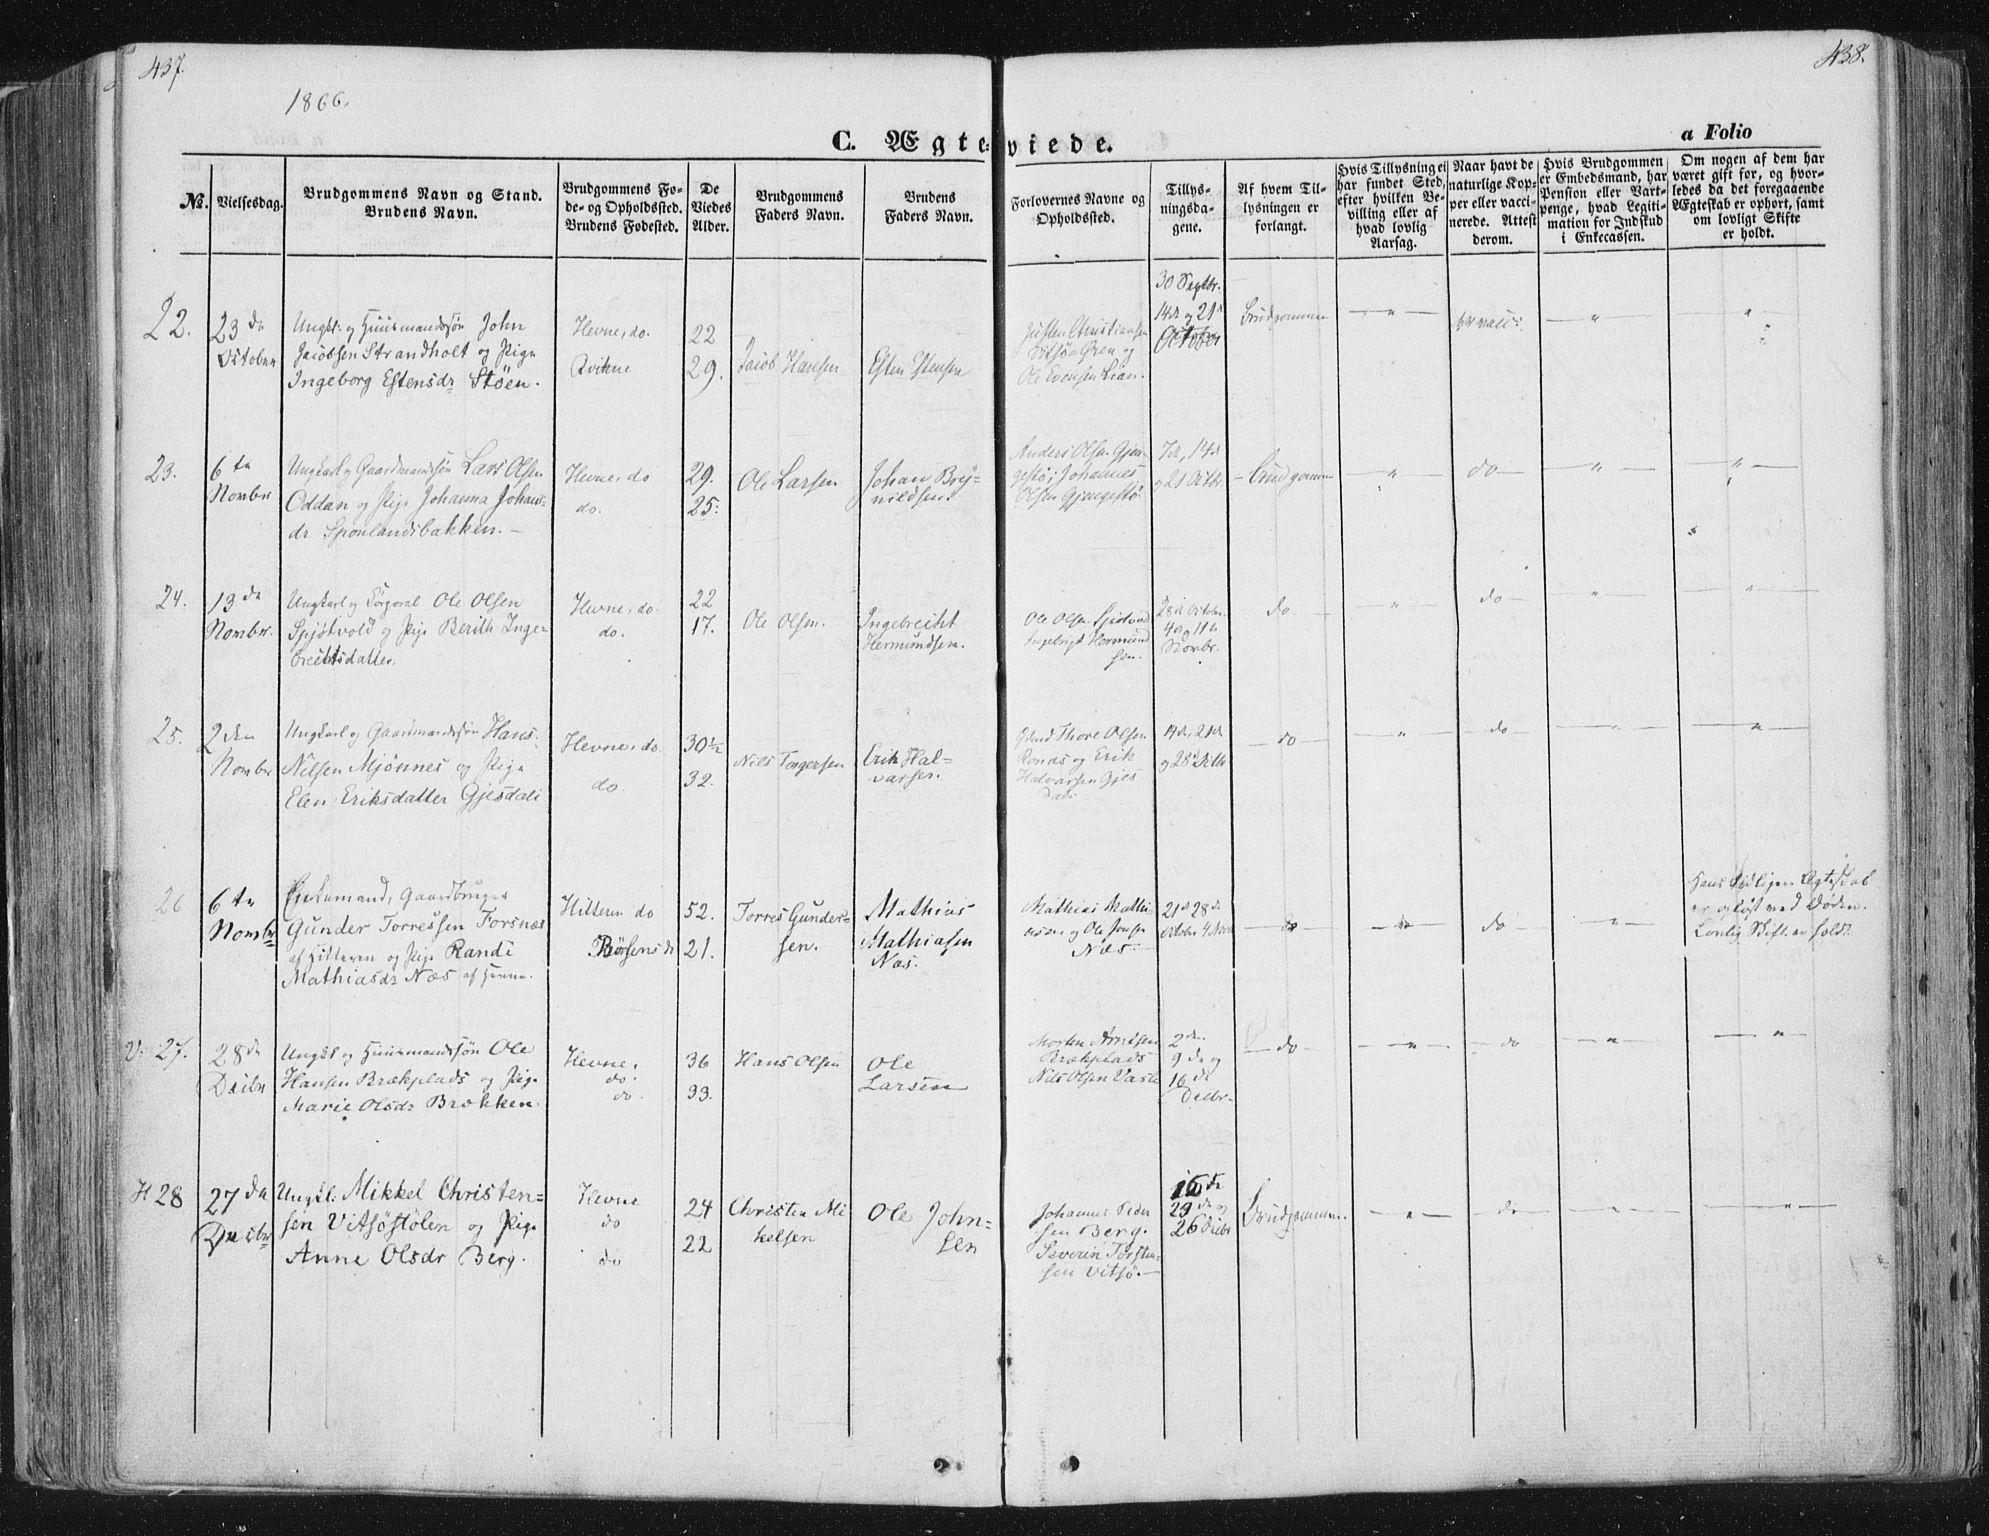 437.
438.
1866.
C. Ægteviede.
a Folio
No.
Vielsesdag.
Brudgommens Navn og Stand.
Brudens Navn.
Brudgommens Fø-
de- og Opholdssted.
Brudens Fødested.
De
Viedes
Alder.
Brudgommens
Faders Navn.
Brudens
Faders Navn.
Forlovernes Navne og
Opholdssted.
Tillys-
ningsda-
gene.
Af hvem Til-
lysningen er
forlangt.
Hvis Tillysning ei
har fundet Sted,
efter hvilken Be-
villing eller af
hvad lovlig
Aarsag.
Naar havt de
naturlige Kop-
per eller vacci-
nerede. Attest
derom.
Hvis Brudgommen
er Embedsmand, har
Pension eller Vart-
penge, hvad Legiti-
mation for Indskud
i Enkecassen.
Om nogen af dem har
været gift før, og hvor-
ledes da det foregaaende
Ægteskab er ophørt, samt
om lovligt Skifte
er holdt.
22.
23de
October
Ungkl: og Huusmandssøn John
Jacobsen Strandholt og Pige
Ingeborg Estensdr Støen.
Hevne, do.
Qvikne
22
29.
Jacob Hansen
Esten Estensen
Justen Christiansen
Vitsø-Øren og
Ole Evensen Lian.
30 Septbr.
14de og 21de
October
Brudgommen
23.
6te
Novmbr
Ungkarl og Gaardmandssøn Lars Olsen
Oddan og Pige Johanna Johans-
dr Sponlandsbakken.
Hevne, do
do.
29.
25.
Ole Larsen
Johan Bry-
nildsen.
Anders Olsen Gjen-
gestø; Johannes
Olsen Gjengestø
7de, 14de
og 21 Octbr
Brudgommen
do
24.
13de
Novmbr.
Ungkarl og Corporal Ole Olsen
Spjøtvold og Pige Berith Inge-
brechtsdatter.
Hevne, do.
do.
22
17.
Ole Olsen.
Ingebrecht
Hermundsen.
Ole Olsen Spjøtvold
Ingebrigt Hermund
sen.
28de October
4de og 11te
Novbr.
do
do
25.
2den
Novmbr
Ungkarl og Gaardmandssøn Hans
Nilsen Mjønnes og Pige
Elen Eriksdatter Gjesdali
Hevne, do
do
30½
32.
Nils Torgersen
Erik Hal-
varsen.
Thore Olsen
Ronds og Erik
Halvarsen Gjes
dali
14de, 21de
og 28de
do
do
26
6te
Novmbr
Enkemand, Gaardbruger
Gunder Torressen Forsnes
af Hitteren og Pige Randi
Mathiasdr Næs af Hevne.
Hitteren do
Børsens
52.
21.
Torres Gunder-
sen.
Mathias
Mathiasen
Næs.
Mathias Mathi-
asen og Ole Jonsen
Næs
21de 28de
October 4 Novr
do
do
Hans tidligere Ægteskab
er opløst ved Døden.
Lovlig Skift. er holdt
V. 27.
28de
Decbr
Ungkl og Huusmandssøn Ole
Hansen Brækplads og Pige
Marie Olsdr Brækken.
Hevne.
do
do.
36
33.
Hans Olsen
Ole
Larsen
Morten Arntsen
Brækplads
Nils Olsen Vasli
2den
9de og
16de
Decbr.
do
do
H 28
27de
Decbr
Ungkl: Mikkel Christen-
sen Vitsøstølen og Pige
Anne Olsdr Berg.
Hevne
do
do
24
22
Christen Mi
kelsen
Ole John-
sen
Johannes Peder
sen Berg.
Severin Torsten-
sen Vitsø.
16de
23de og
26 Decbr
Brudgommen.
do